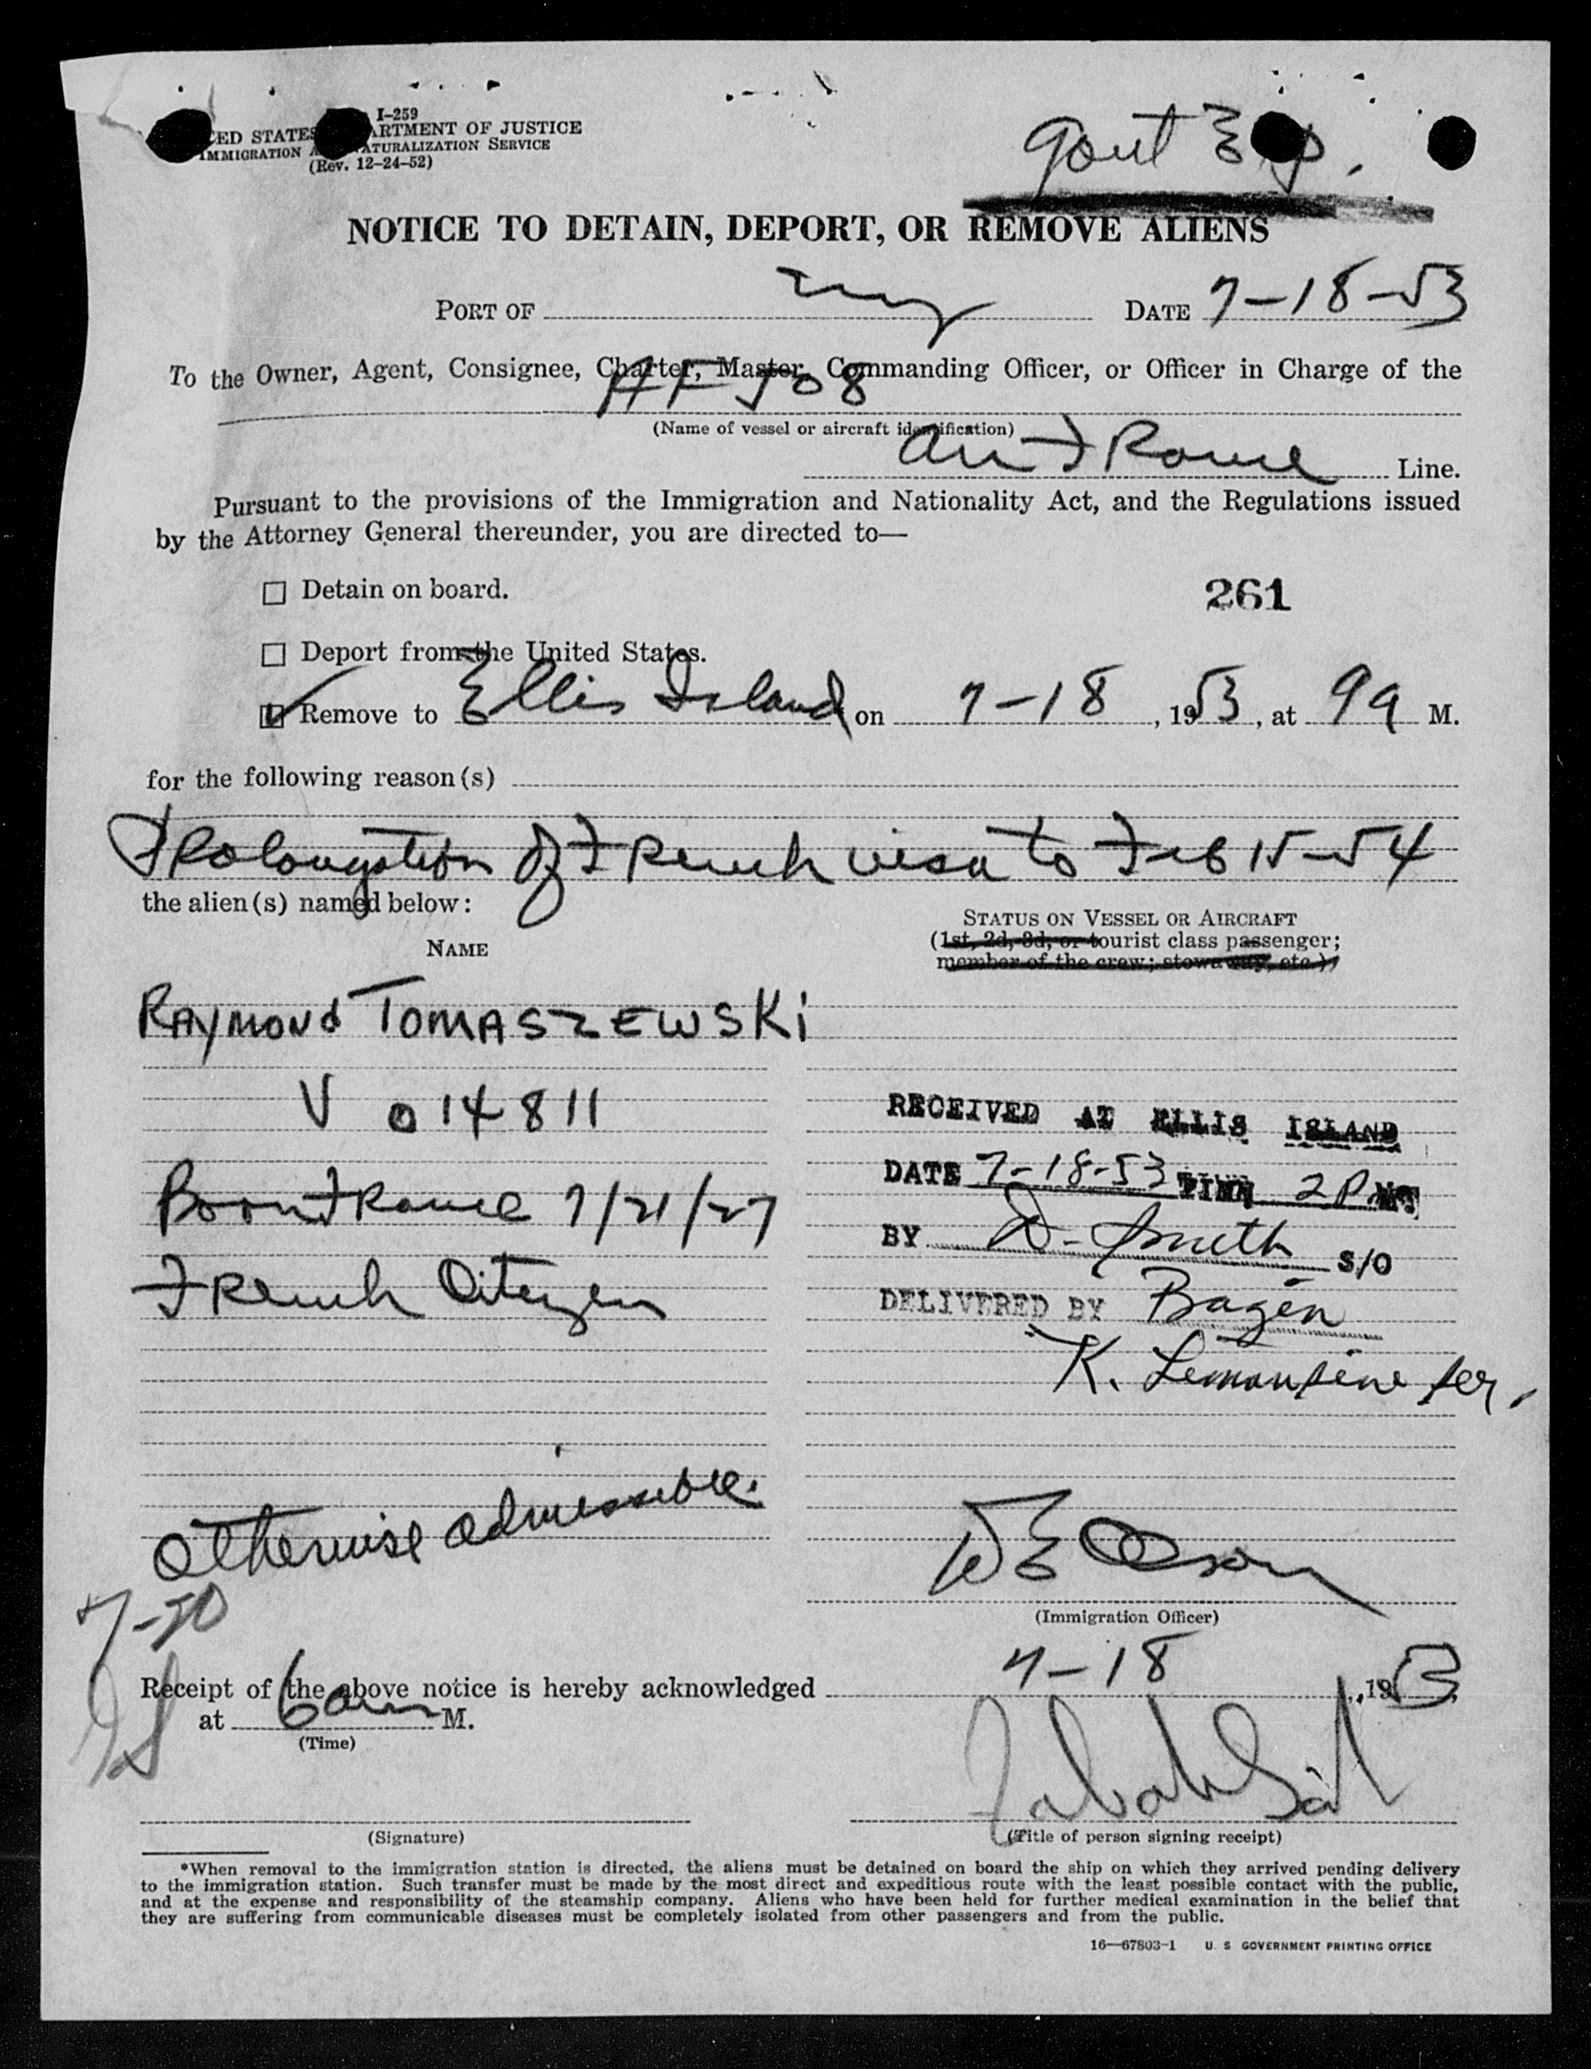 I-259
UNITED STATES DEPARTMENT OF JUSTICE
IMMIGRATION AND NATURALIZATION SERVICE
(Rev. 12-24-52)
Gout Exp.
NOTICE TO DETAIN, DEPORT, OR REMOVE ALIENS
PORT OF NY DATE 7-18-53
To the Owner, Agent, Consignee, Charter, Master, Commanding Officer, or Officer in Charge of the
AF 508
(Name of vessel or aircraft identification)
Air France Line.
Pursuant to the provisions of the Immigration and Nationality Act, and the Regulations issued
by the Attorney General thereunder, you are directed to—
☐ Detain on board.
261
☐ Deport from the United States.
Remove to Ellis Island on 7-18, 1953, at 9 a M.
for the following reason(s)
Prolongation of French visa to Feb 15-54
the alien(s) named below:
STATUS ON VESSEL OR AIRCRAFT
(1st, 2d, 3d, or tourist class passenger;
NAME
member of the crew; stowaway, etc.),
RAYMOND TOMASZEWSKI
V 014811
RECEIVED AT ELLIS ISLAND
DATE 7-18-53 TIME 2 P.M.
Born France 7/21/27
BY D. Smith S/O
French Citizen
DELIVERED BY Bagen
K. Lemousine ser.
Otherwise admissible.
W E Olson
7-20
(Immigration Officer)
Receipt of the above notice is hereby acknowledged 7-18, 1953,
at 6 am M.
(Time)
(Signature)
(Title of person signing receipt)
*When removal to the immigration station is directed, the aliens must be detained on board the ship on which they arrived pending delivery
to the immigration station. Such transfer must be made by the most direct and expeditious route with the least possible contact with the public,
and at the expense and responsibility of the steamship company. Aliens who have been held for further medical examination in the belief that
they are suffering from communicable diseases must be completely isolated from other passengers and from the public.
16—67803-1 U. S. GOVERNMENT PRINTING OFFICE